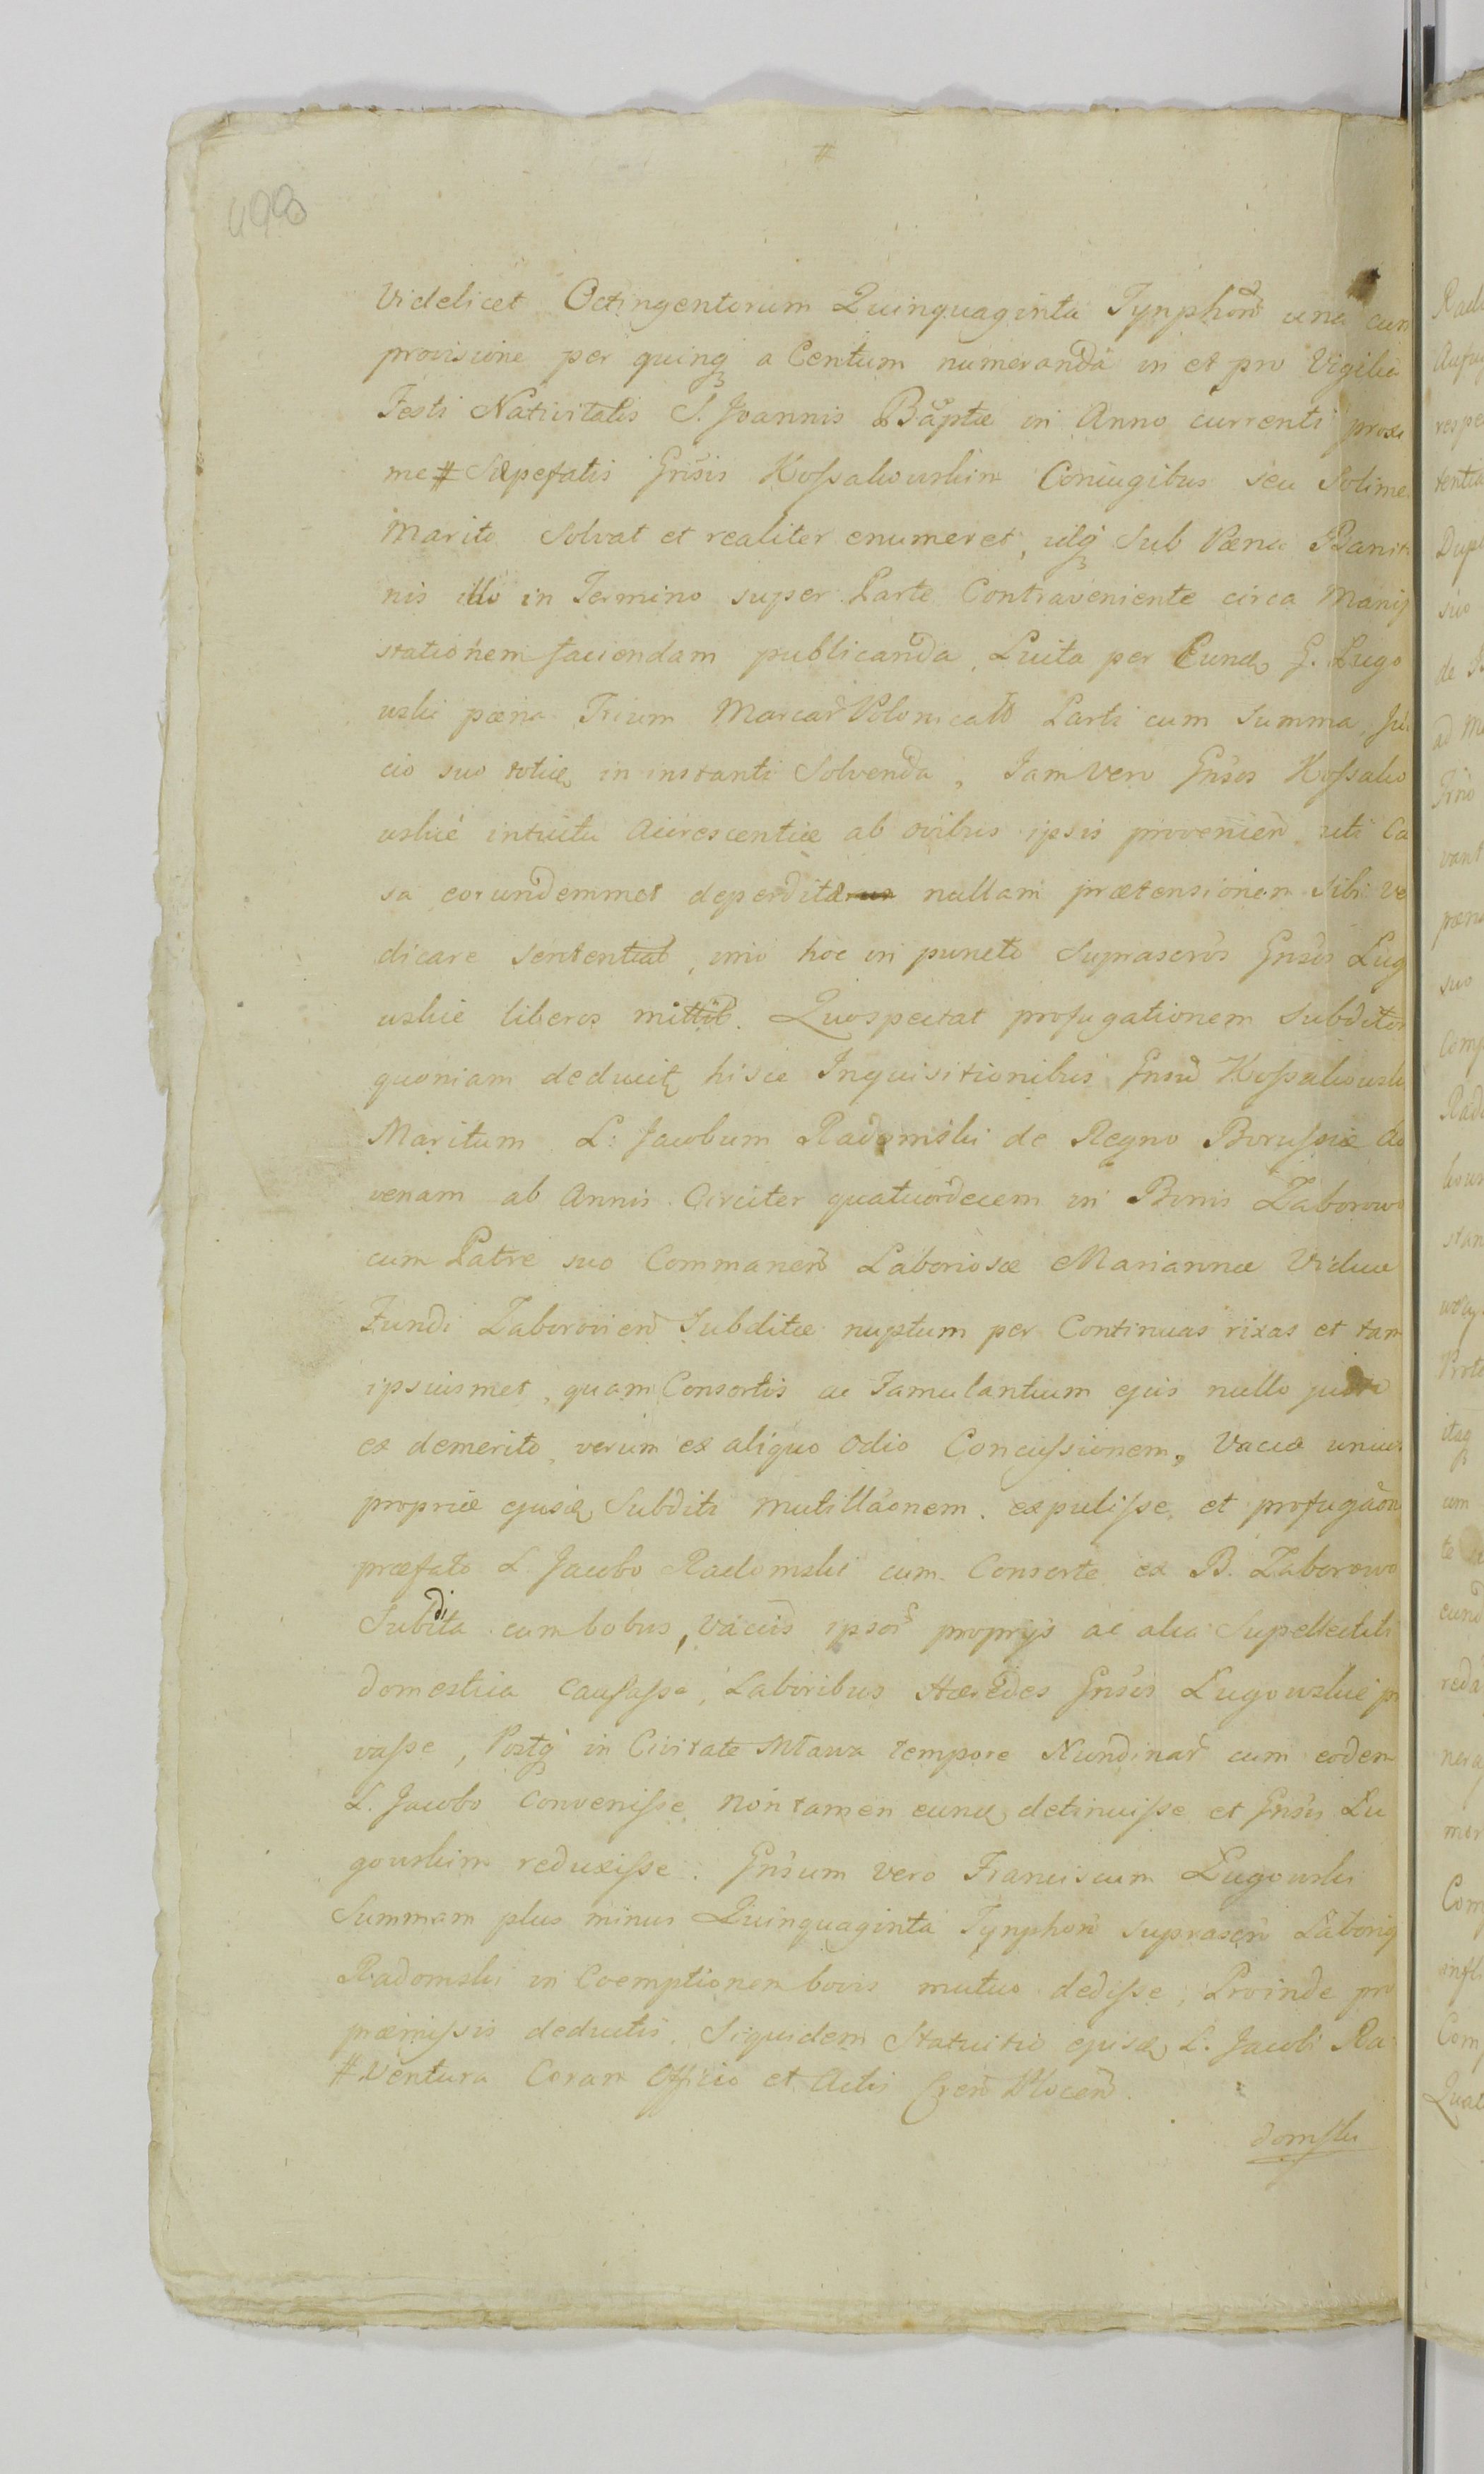 498
#
Videlicet Octingentorum Quinquaginta Tynphor̃ una cum
provisione per quinq₃ a Centum numeranda in et pro Vigilia
Festi Nativitatis S. Joannis Bãptæ in Anno currenti proxi
me # Sæpefatis Gñsis Kossakowskim Coniugibus seu Solime
Marito Solvat et realiter enumeret, idq₃ Sub Pæna Banitio
nis illo in Termino super Parte Contraveniente circa Manife
stationem faciendam publicanda, Luita per Eund G. Lugo
wski pæna Trium Marcar̃ Polonicalt Parti cum Summa, Judi
cio suo totid in instanti Solvenda, Jam Vero Gñsos Kossako
wskie intuitu Accrescentiæ ab ovibus ipsis provenien̄ uti Ca
sa eorundemmet deperdita nullam prætensionem Sibi Ve
dicare sententiat, imo hoc in puncto Suprascr̃os Gñsos Lug
wskie liberos mittit. Quospectat profugationem Subditor
quoniam deducit̃ hisce Inquisitionibus Gnsũ Kossakowski
Maritum L: Jacobum Radomski de Regno Borussiæ Ad
venam ab Annis Circiter quatuordecem in Bonis Zaborowo
cum Patre suo Commanen̄ Laboriosæ Mariannæ Viduæ
Fundi Zaborovien̄ Subditæ nuptum per Continuas rixas et tam
ipsiusmet, quam Consortis ac Famulantium ejus nullo justo
ex demerito, verum ex aliquo Odio Concussionem, Vaccæ unius
propriæ ejusd Subditi mutillãonem. expulisse, et profugãon
præfato L. Jacobo Radomski cum Consorte ex B. Zaborowo
Subdita cum bobus, vaccis ipsor̃ proprijs ac alia Supellectili
domestica causasse, Laboribus Hæredes Gñsos Lugowskie pri
vasse, Postq₃ in Civitate Mława tempore Nundinar̃ cum eodem
L. Jacobo convenisse, non tamen eund detinuisse et Gñsis Lu
gowskim reduxisse. Gñsum vero Franciscum Lugowski
Summam plus minus Quinquaginta Tynphor̃ suprascr̃o Laborio
Radomski in Coemptionem bovis mutuo dedisse; Proinde pro
præmissis deductis. Siquidem Statuitio ejusd L. Jacobi Ra
# Ventura Coram Officio et Actis Plocen̄.
domski